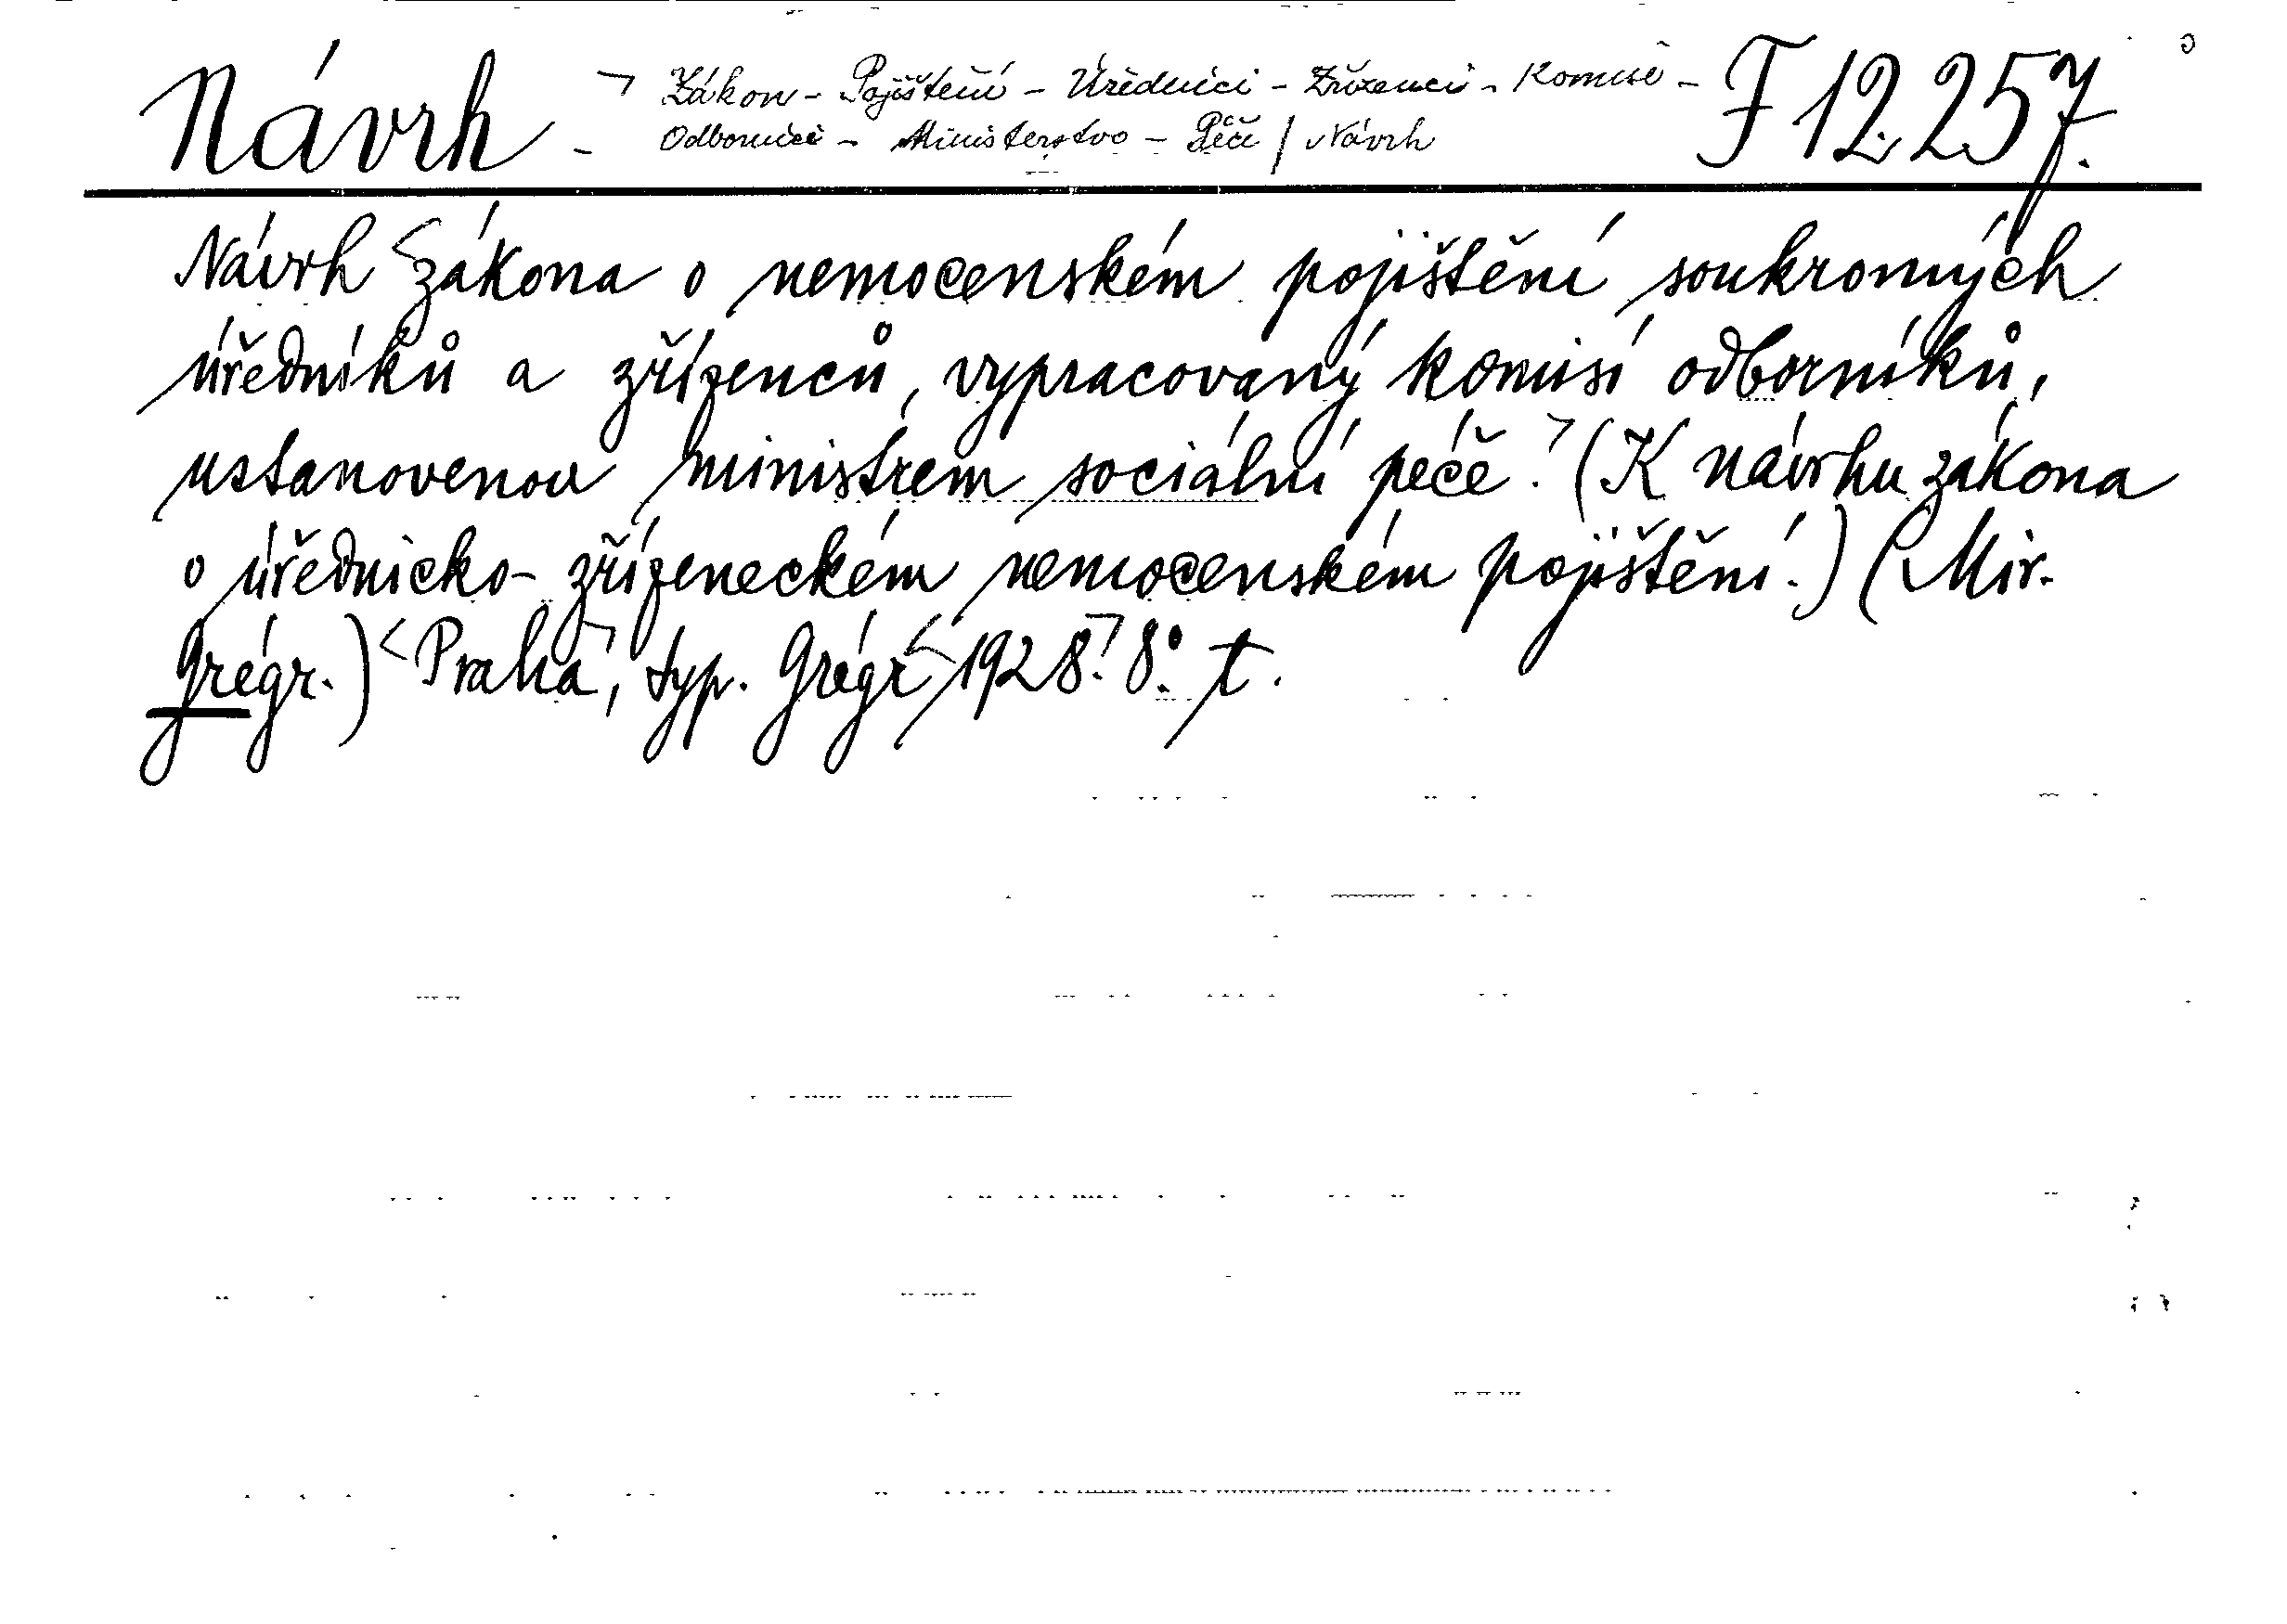 Návrh - Zákon - Pojištění - Úředníci - Zřízenci - Komise - F 12.257.
Odborníci - Ministerstvo - Péče / Návrh
Návrh zákona o nemocenském pojištění soukromých
úředníků a zřízenců, vypracovaný komisí odborníků,
ustanovenou ministrem sociální péče. (K návrhu zákona
o úřednicko-zřízeneckém nemocenském pojištění.) (Mir.
Grégr.) Praha, typ. Grégr 1928. 8° t.